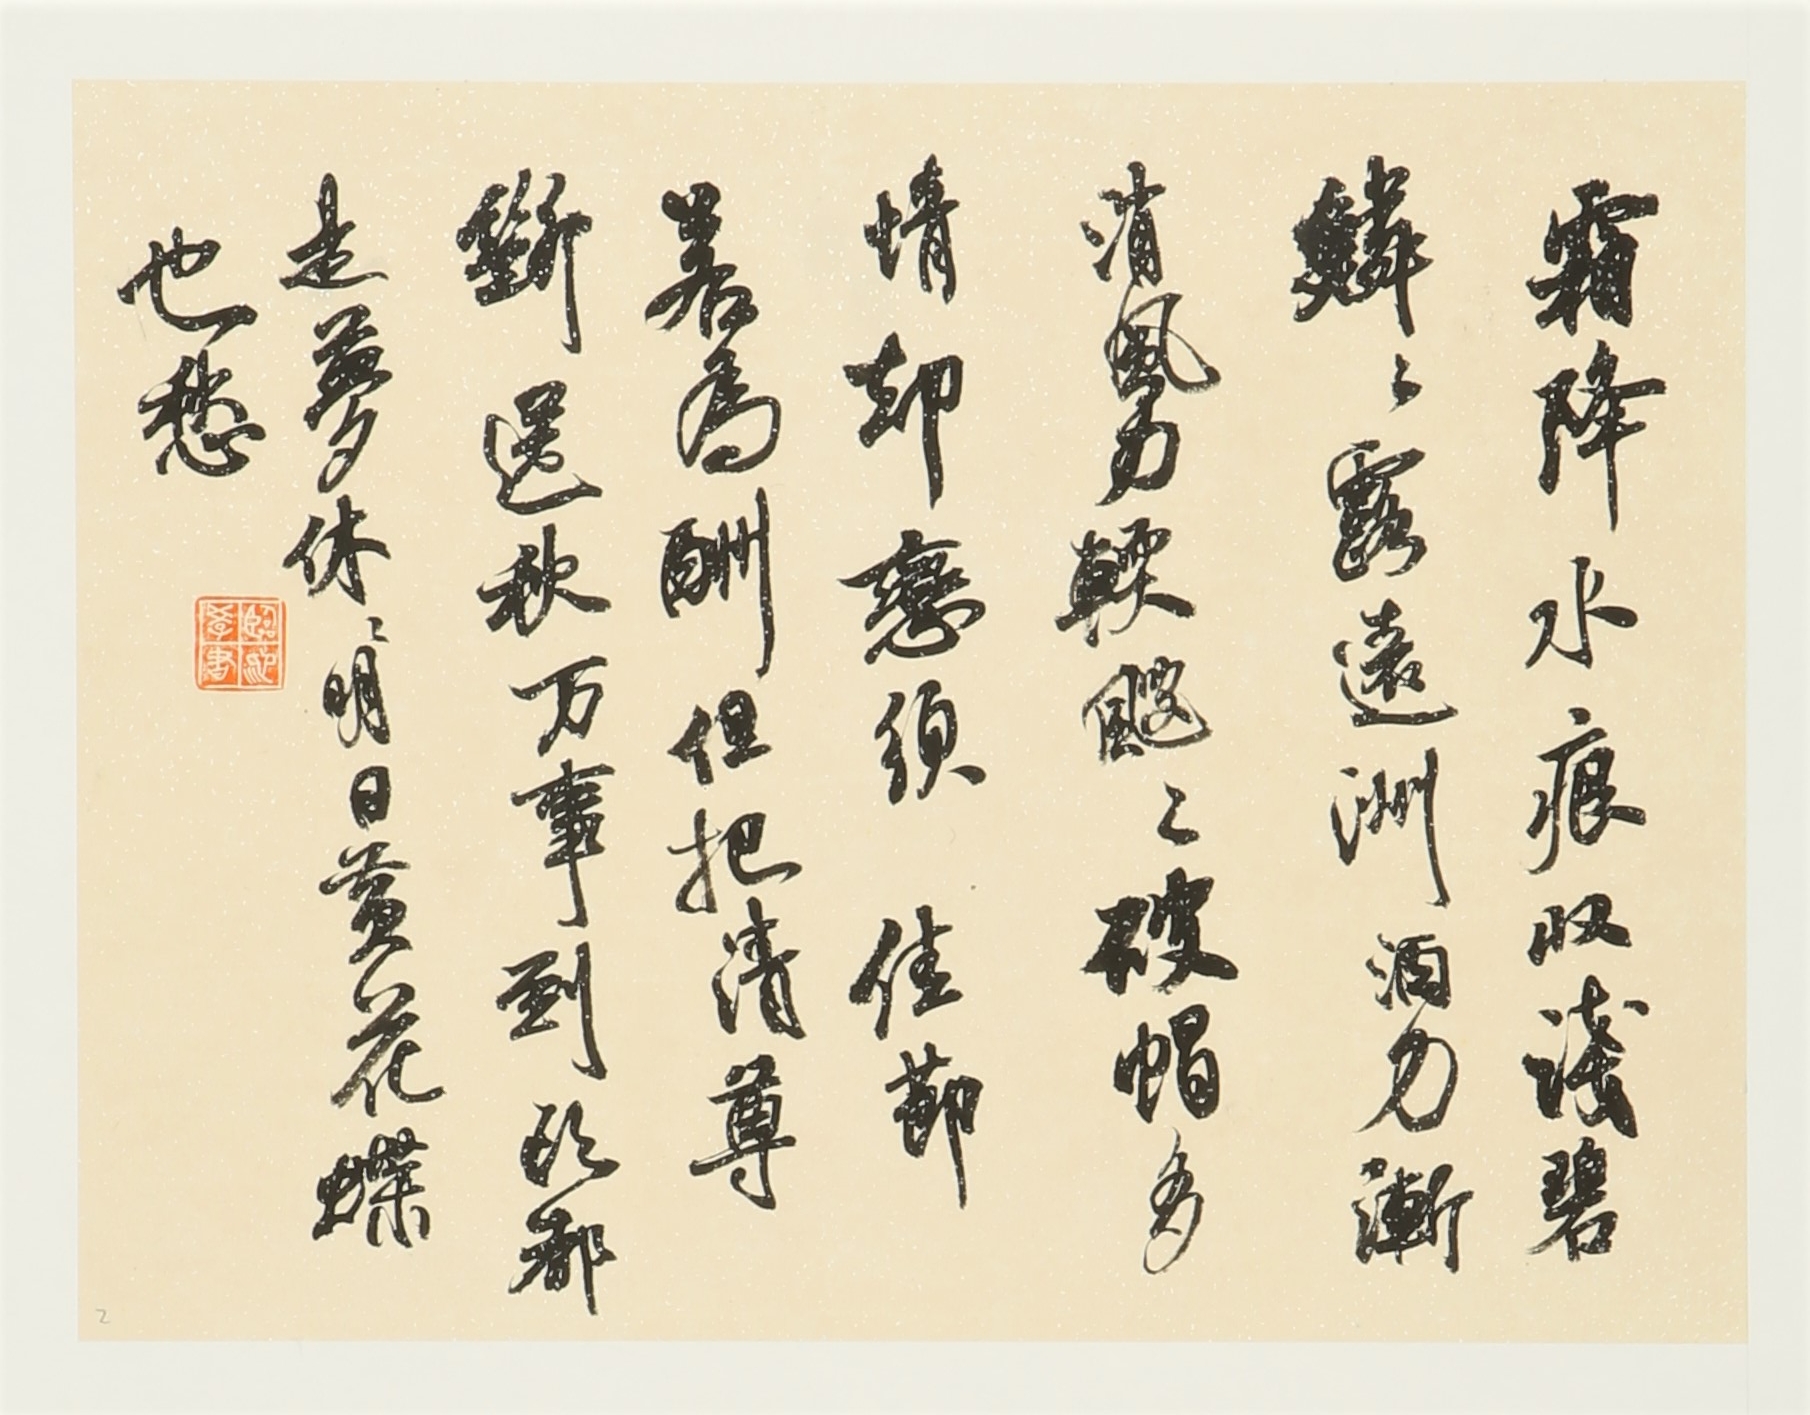 霜降水痕収淺碧
鱗〻露遠洲酒力漸
消風力輭颼〻破帽多
情却戀頭佳節
若為酬但把清尊
斷送秋万事到頭都
是夢休〻明日黄花蝶
也愁
臨池學書